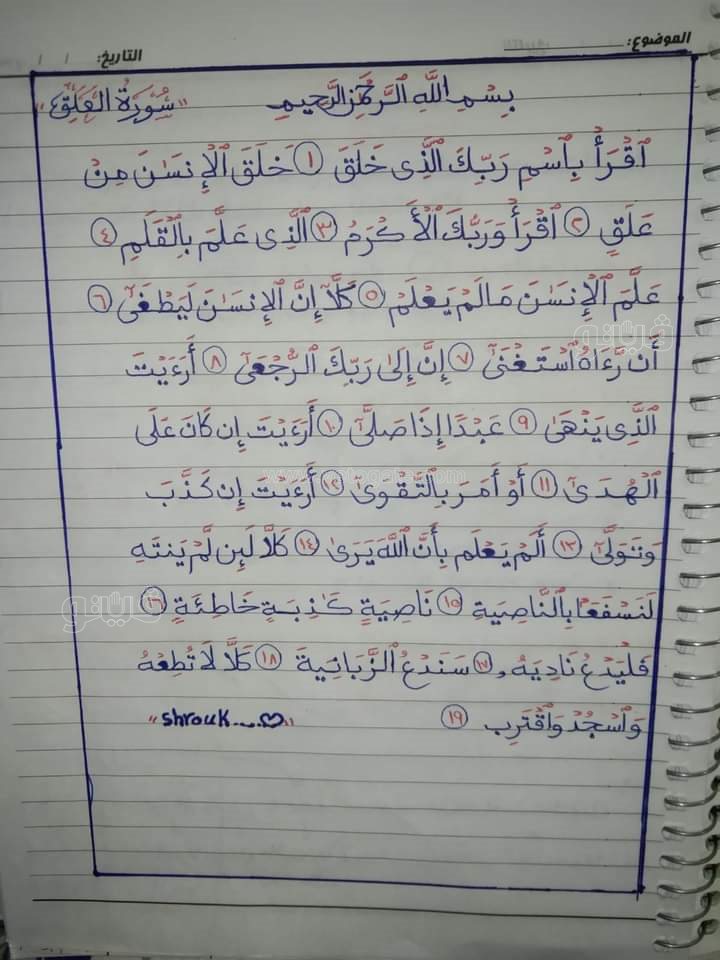 الموضوع: التاريخ: / /
بِسْمِ اللَّهِ الرَّحْمَٰنِ الرَّحِيمِ "سُورَةُ الْعَلَقِ"
ٱقْرَأْ بِٱسْمِ رَبِّكَ ٱلَّذِى خَلَقَ ١ خَلَقَ ٱلْإِنسَٰنَ مِنْ
عَلَقٍ ٢ ٱقْرَأْ وَرَبُّكَ ٱلْأَكْرَمُ ٣ ٱلَّذِى عَلَّمَ بِٱلْقَلَمِ ٤
عَلَّمَ ٱلْإِنسَٰنَ مَا لَمْ يَعْلَمْ ٥ كَلَّآ إِنَّ ٱلْإِنسَٰنَ لَيَطْغَىٰٓ ٦
أَن رَّءَاهُ ٱسْتَغْنَىٰٓ ٧ إِنَّ إِلَىٰ رَبِّكَ ٱلرُّجْعَىٰٓ ٨ أَرَءَيْتَ
ٱلَّذِى يَنْهَىٰ ٩ عَبْدًا إِذَا صَلَّىٰٓ ١٠ أَرَءَيْتَ إِن كَانَ عَلَى
ٱلْهُدَىٰٓ ١١ أَوْ أَمَرَ بِٱلتَّقْوَىٰٓ ١٢ أَرَءَيْتَ إِن كَذَّبَ
وَتَوَلَّىٰٓ ١٣ أَلَمْ يَعْلَم بِأَنَّ ٱللَّهَ يَرَىٰ ١٤ كَلَّا لَئِن لَّمْ يَنتَهِ
لَنَسْفَعًۢا بِٱلنَّاصِيَةِ ١٥ نَاصِيَةٍ كَٰذِبَةٍ خَاطِئَةٍ ١٦
فَلْيَدْعُ نَادِيَهُۥ ١٧ سَنَدْعُ ٱلزَّبَانِيَةَ ١٨ كَلَّا لَا تُطِعْهُ
وَٱسْجُدْ وَٱقْتَرِب ١٩ "shrouk....♡"